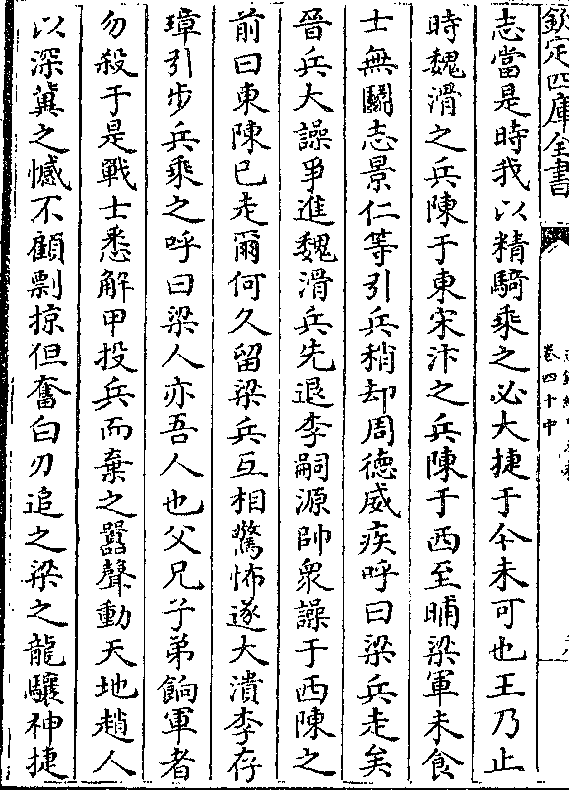 欽定四庫全書
卷四十中
志當是時我以精騎乘之必大捷于今未可也王乃止
時魏滑之兵陳于東宋汴之兵陳于西至晡梁軍未食
士無鬭志景仁等引兵稍却周德威疾呼曰梁兵走矣
晉兵大譟爭進魏滑兵先退李嗣源帥衆譟于西陳之
前曰東陳已走爾何久留梁兵互相驚怖遂大潰李存
璋引步兵乘之呼曰梁人亦吾人也父兄子弟餉軍者
勿殺于是戰士悉解甲投兵而棄之囂聲動天地趙人
以深冀之憾不顧剽掠但奮白刃追之梁之龍驤神捷